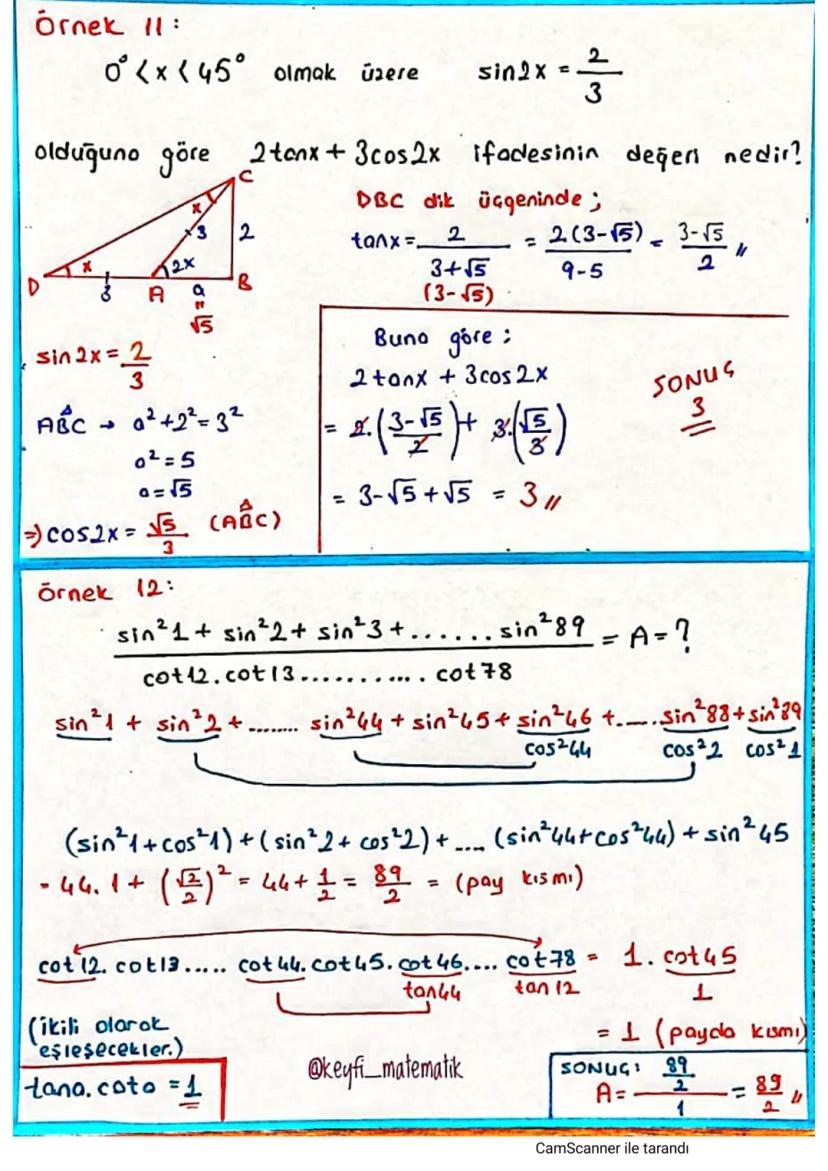 Örnek 11:
0° < x < 45° olmak üzere sin2x = 2/3
olduğuna göre 2tanx + 3cos2x ifadesinin değeri nedir?
C
x
3
2
x
2x
D
3
A
a
B
"
√5
DBC dik üçgeninde ;
tanx = 2/(3+√5) = 2(3-√5)/(9-5) = (3-√5)/2 //
(3-√5)
sin2x = 2/3
ABC → a²+2² = 3²
a² = 5
a = √5
⇒ cos2x = √5/3 (ABC)
Buna göre :
2tanx + 3cos2x
= 2.((3-√5)/2) + 3.(√5/3)
= 3-√5+√5 = 3 //
SONUÇ
3
Örnek 12:
(sin²1 + sin²2 + sin²3 + ....... sin²89)/(cot12.cot13............ cot78) = A = ?
sin²1 + sin²2 + ........ sin²44 + sin²45 + sin²46 + ...... sin²88 + sin²89
cos²44 cos²2 cos²1
(sin²1+cos²1) + (sin²2+cos²2) + .... (sin²44+cos²44) + sin²45
= 44.1 + (√2/2)² = 44 + 1/2 = 89/2 = (pay kısmı)
cot12.cot13..... cot44.cot45.cot46.... cot78 = 1.cot45
tan44 tan12 1
(ikili olarak
eşleşecekler.)
= 1 (payda kısmı)
tana.cota = 1
@keyfi_matematik
SONUÇ:
A = (89/2)/1 = 89/2 //
CamScanner ile tarandı